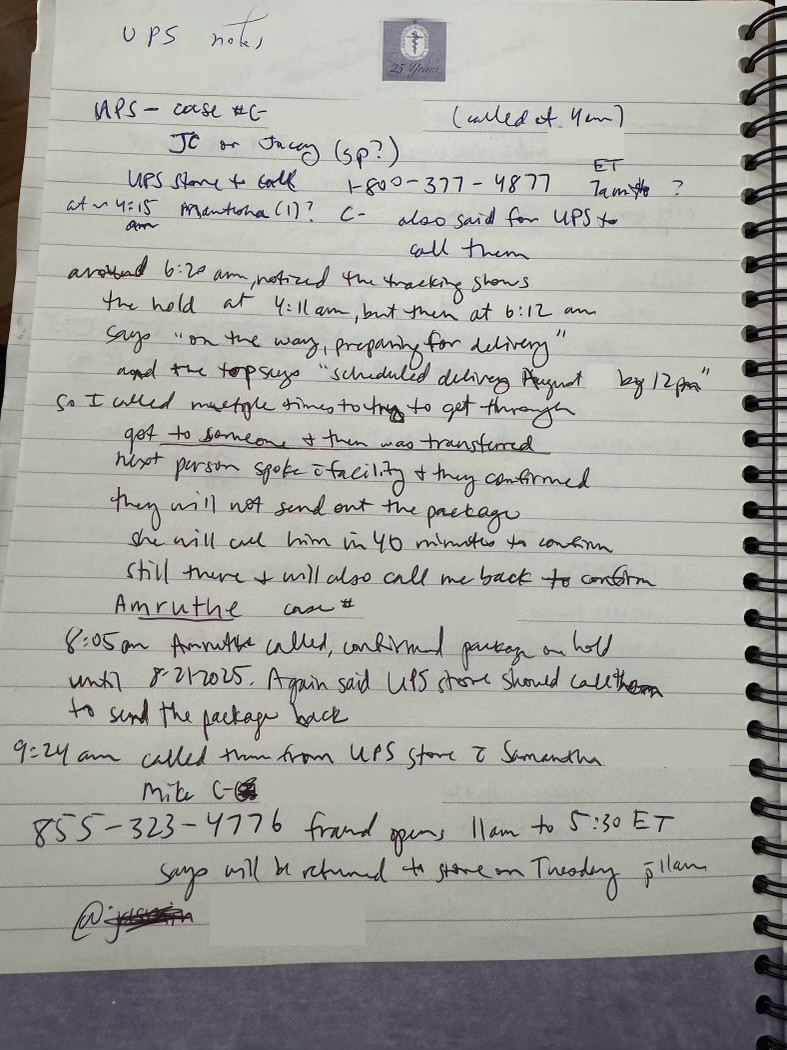 UPS notes
25 Years
UPS - case #C-
(called at 4am)
JC or Jacey (sp?)
ET
UPS store to call 1-800-377-4877 7am to ?
at ~ 4:15 (1)? C- also said for UPS to
am call them
around 6:20 am, noticed the tracking shows
the hold at 4:11 am, but then at 6:12 am
says "on the way, preparing for delivery"
and the top says "scheduled delivery August by 12pm"
So I called multiple times to try to get through
got to someone & then was transferred
next person spoke c̄ facility & they confirmed
they will not send out the package
she will call him in 40 minutes to confirm
still there & will also call me back to confirm
Amruthe case #
8:05 am Amruthe called, confirmed package on hold
until 8-21-2025. Again said UPS store should call them
to send the package back
9:24 am called them from UPS store c̄ Samantha
Mike C-
855-323-4776 fraud opens 11am to 5:30 ET
says will be returned to store on Tuesday p̄ 11am
@